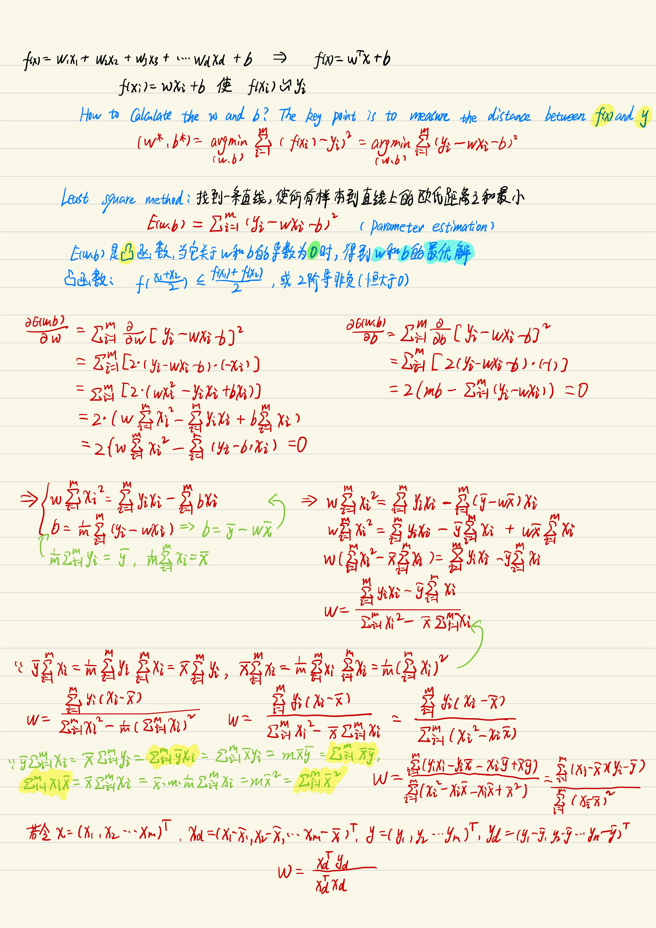 f(x) = w₁x₁ + w₂x₂ + w₃x₃ + ⋯ w_d x_d + b ⇒ f(x) = wᵀx + b
f(xᵢ) = wxᵢ + b 使 f(xᵢ) ≃ yᵢ
How to Calculate the w and b? The key point is to measure the distance between f(x) and y
(w*, b*) = argmin_(w,b) Σ_{i=1}^m (f(xᵢ) - yᵢ)² = argmin_(w,b) Σ_{i=1}^m (yᵢ - wxᵢ - b)²
Least square method: 找到一条直线, 使所有样本到直线上的欧氏距离之和最小
E(w,b) = Σ_{i=1}^m (yᵢ - wxᵢ - b)² (parameter estimation)
E(w,b) 是凸函数, 当它关于w和b的导数为0时, 得到w和b的最优解
凸函数: f((x₁+x₂)/2) ≤ (f(x₁)+f(x₂))/2, 或2阶导非负(恒大于0)
∂E(w,b)/∂w = Σ_{i=1}^m ∂/∂w [yᵢ - wxᵢ - b]²
= Σ_{i=1}^m [2·(yᵢ - wxᵢ - b)·(-xᵢ)]
= Σ_{i=1}^m [2·(wxᵢ² - yᵢxᵢ + bxᵢ)]
= 2·(w Σ_{i=1}^m xᵢ² - Σ_{i=1}^m yᵢxᵢ + b Σ_{i=1}^m xᵢ)
= 2(w Σ_{i=1}^m xᵢ² - Σ_{i=1}^m (yᵢ - b)xᵢ) = 0
∂E(w,b)/∂b = Σ_{i=1}^m ∂/∂b [yᵢ - wxᵢ - b]²
= Σ_{i=1}^m [2(yᵢ - wxᵢ - b)·(-1)]
= 2(mb - Σ_{i=1}^m (yᵢ - wxᵢ)) = 0
⇒ { w Σ_{i=1}^m xᵢ² = Σ_{i=1}^m yᵢxᵢ - Σ_{i=1}^m bxᵢ
b = 1/m Σ_{i=1}^m (yᵢ - wxᵢ) ⇒ b = ȳ - wx̄
1/m Σ_{i=1}^m yᵢ = ȳ, 1/m Σ_{i=1}^m xᵢ = x̄
⇒ w Σ_{i=1}^m xᵢ² = Σ_{i=1}^m yᵢxᵢ - Σ_{i=1}^m (ȳ - wx̄)xᵢ
w Σ_{i=1}^m xᵢ² = Σ_{i=1}^m yᵢxᵢ - ȳ Σ_{i=1}^m xᵢ + wx̄ Σ_{i=1}^m xᵢ
w(Σ_{i=1}^m xᵢ² - x̄ Σ_{i=1}^m xᵢ) = Σ_{i=1}^m yᵢxᵢ - ȳ Σ_{i=1}^m xᵢ
w = (Σ_{i=1}^m yᵢxᵢ - ȳ Σ_{i=1}^m xᵢ) / (Σ_{i=1}^m xᵢ² - x̄ Σ_{i=1}^m xᵢ)
∵ ȳ Σ_{i=1}^m xᵢ = 1/m Σ_{i=1}^m yᵢ Σ_{i=1}^m xᵢ = x̄ Σ_{i=1}^m yᵢ, x̄ Σ_{i=1}^m xᵢ = 1/m Σ_{i=1}^m xᵢ Σ_{i=1}^m xᵢ = 1/m (Σ_{i=1}^m xᵢ)²
w = Σ_{i=1}^m yᵢ(xᵢ - x̄) / (Σ_{i=1}^m xᵢ² - 1/m (Σ_{i=1}^m xᵢ)²) w = Σ_{i=1}^m yᵢ(xᵢ - x̄) / (Σ_{i=1}^m xᵢ² - x̄ Σ_{i=1}^m xᵢ) = Σ_{i=1}^m yᵢ(xᵢ - x̄) / Σ_{i=1}^m (xᵢ² - xᵢx̄)
∵ ȳ Σ_{i=1}^m xᵢ = x̄ Σ_{i=1}^m yᵢ = Σ_{i=1}^m ȳxᵢ = Σ_{i=1}^m x̄yᵢ = mx̄ȳ = Σ_{i=1}^m x̄ȳ,
Σ_{i=1}^m xᵢx̄ = x̄ Σ_{i=1}^m xᵢ = x̄·m·1/m Σ_{i=1}^m xᵢ = mx̄² = Σ_{i=1}^m x̄²
w = Σ_{i=1}^m (yᵢxᵢ - yᵢx̄ - xᵢȳ + x̄ȳ) / Σ_{i=1}^m (xᵢ² - xᵢx̄ - xᵢx̄ + x̄²) = Σ_{i=1}^m (xᵢ - x̄)(yᵢ - ȳ) / Σ_{i=1}^m (xᵢ - x̄)²
若令 x = (x₁, x₂ ⋯ x_m)ᵀ, x_d = (x₁ - x̄, x₂ - x̄, ⋯ x_m - x̄)ᵀ, y = (y₁, y₂ ⋯ y_m)ᵀ, y_d = (y₁ - ȳ, y₂ - ȳ ⋯ y_m - ȳ)ᵀ
w = x_dᵀ y_d / x_dᵀ x_d